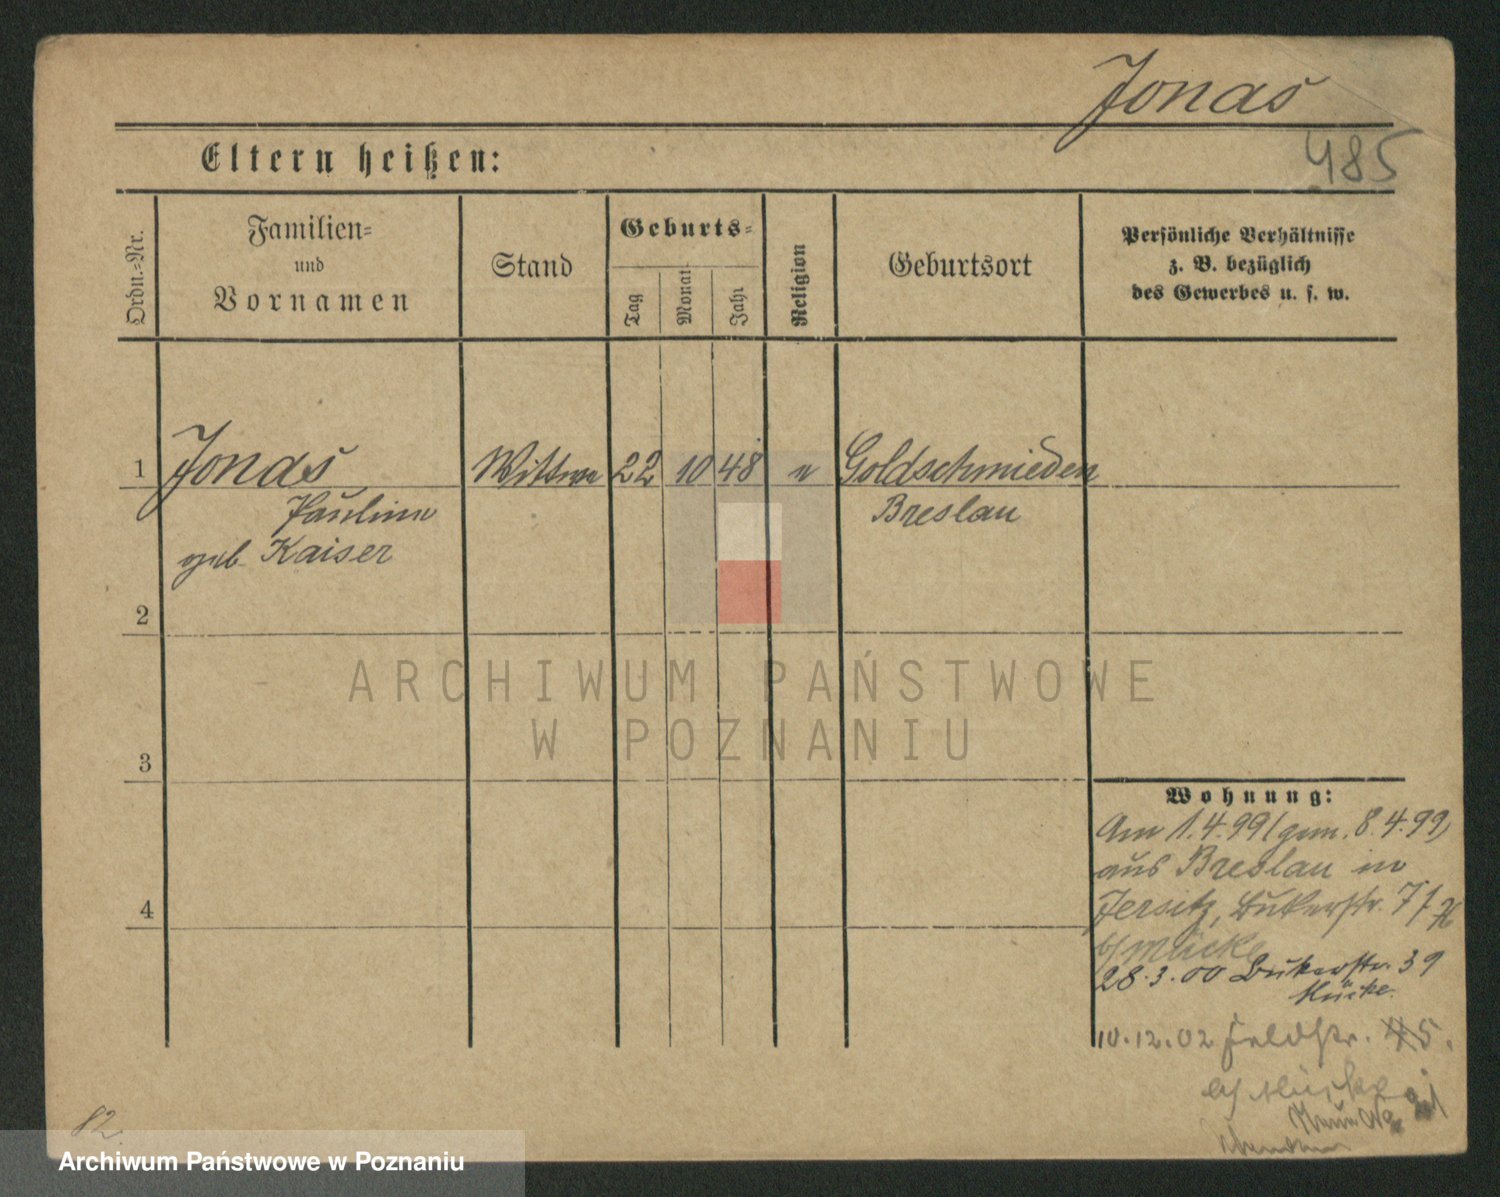 Jonas
485
Eltern heißen:
Ordn.=Nr.
Familien=
und
Vornamen
Stand
Geburts=
Tag
Monat
Jahr
Religion
Geburtsort
Persönliche Verhältnisse
z. B. bezüglich
des Gewerbes u. s. w.
1 Jonas Wittwe 22 10 48 Goldschmieden
Pauline Breslau
geb Kaiser
2
3
4
ARCHIWUM PAŃSTWOWE
W POZNANIU
Wohnung:
Am 1.4.99 (gem. 8.4.99)
aus Breslau in
Jersitz, Bukerstr. 7
b/ Mücke
28.3.00 Bukerstr. 39
Mücke
10.12.02 Feldstr. 5.
b/ Mücke
82.
Archiwum Państwowe w Poznaniu